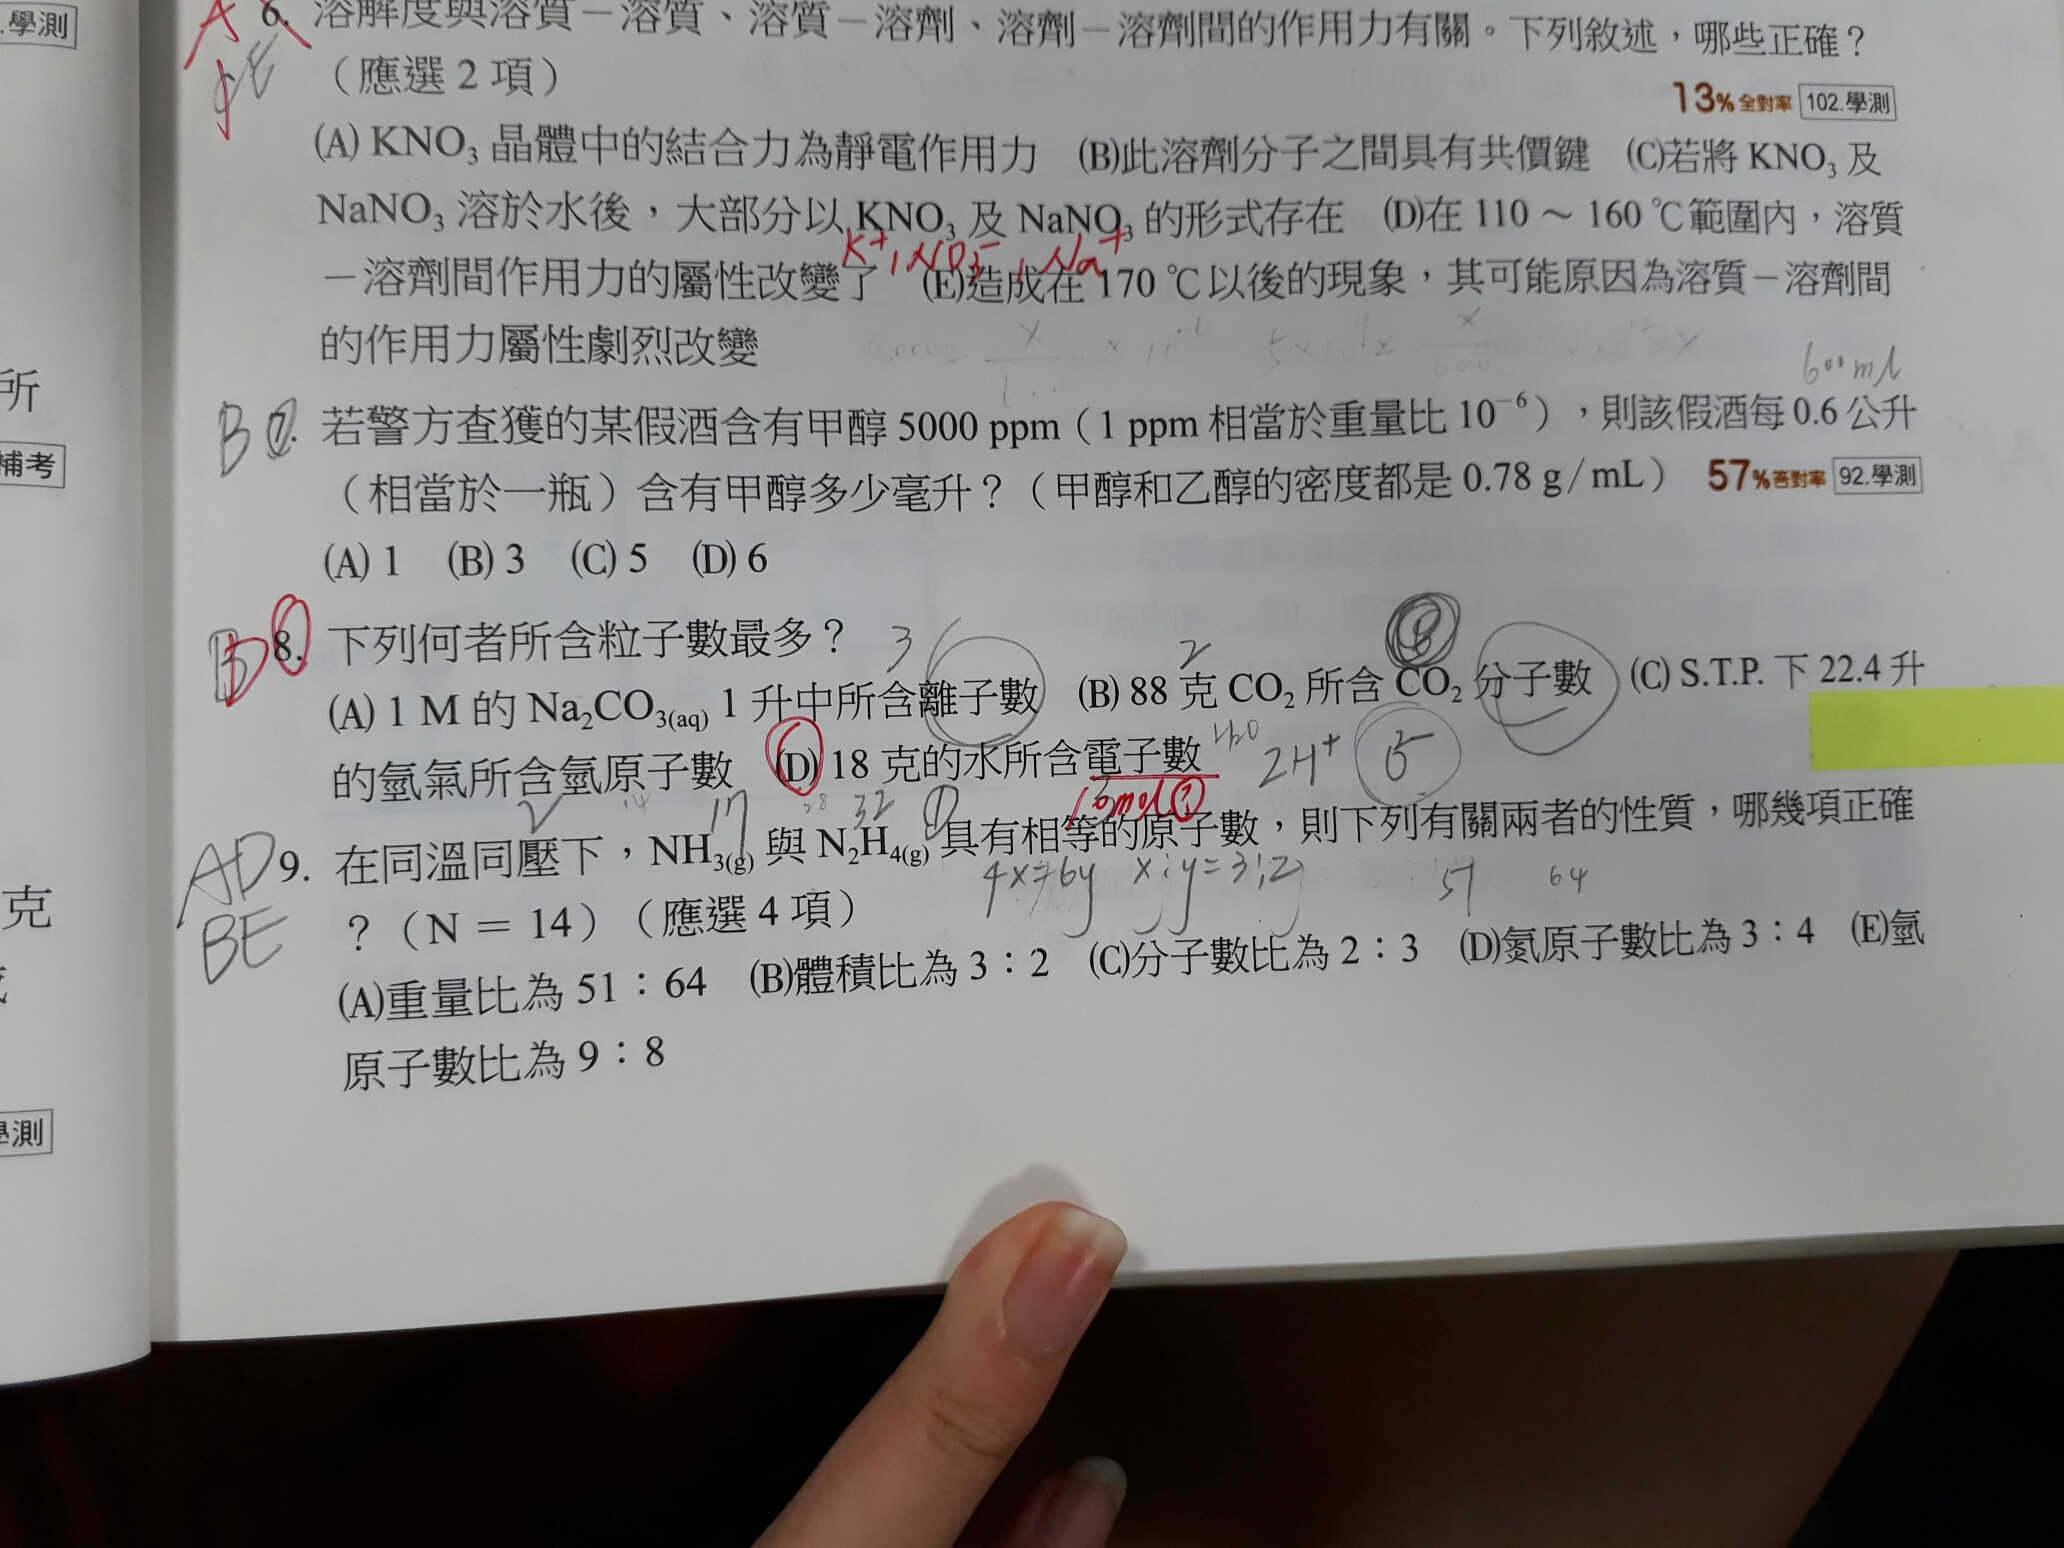 .學測
6. 溶解度與溶質－溶質、溶質－溶劑、溶劑－溶劑間的作用力有關。下列敘述，哪些正確？
（應選 2 項）
13%全對率 102.學測
(A) KNO₃ 晶體中的結合力為靜電作用力 (B)此溶劑分子之間具有共價鍵 (C)若將 KNO₃ 及
NaNO₃ 溶於水後，大部分以 KNO₃ 及 NaNO₃ 的形式存在 (D)在 110 ～ 160 ℃範圍內，溶質
K⁺, NO₃⁻, Na⁺
－溶劑間作用力的屬性改變了 (E)造成在 170 ℃以後的現象，其可能原因為溶質－溶劑間
的作用力屬性劇烈改變
600 ml
所
B 7. 若警方查獲的某假酒含有甲醇 5000 ppm（1 ppm 相當於重量比 10⁻⁶），則該假酒每 0.6 公升
補考
（相當於一瓶）含有甲醇多少毫升？（甲醇和乙醇的密度都是 0.78 g/mL） 57%答對率 92.學測
(A) 1 (B) 3 (C) 5 (D) 6
D 8. 下列何者所含粒子數最多？
3 2 B
(A) 1 M 的 Na₂CO₃(aq) 1 升中所含離子數 (B) 88 克 CO₂ 所含 CO₂ 分子數 (C) S.T.P. 下 22.4 升
的氫氣所含氫原子數 (D) 18 克的水所含電子數 H₂O 2H⁺
2 14 17 28 32
9. 在同溫同壓下，NH₃(g) 與 N₂H₄(g) 具有相等的原子數，則下列有關兩者的性質，哪幾項正確
AD
BE
4x=6y x:y=3:2 51 64
克
？（N ＝ 14）（應選 4 項）
(A)重量比為 51：64 (B)體積比為 3：2 (C)分子數比為 2：3 (D)氮原子數比為 3：4 (E)氫
原子數比為 9：8
學測